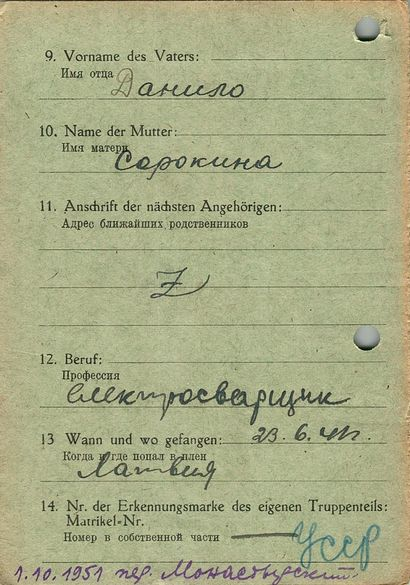 9. Vorname des Vaters:
Имя отца
Данило
10. Name der Mutter:
Имя матери
Сорокина
11. Anschrift der nächsten Angehörigen:
Адрес ближайших родственников
12. Beruf:
Профессия
електросварщик
13 Wann und wo gefangen: 23. 6. 41г.
Когда и где попал в плен
Латвия
14. Nr. der Erkennungsmarke des eigenen Truppenteils:
Matrikel-Nr.
Номер в собственной части — УССР
1.10.1951 пер. Монастырский